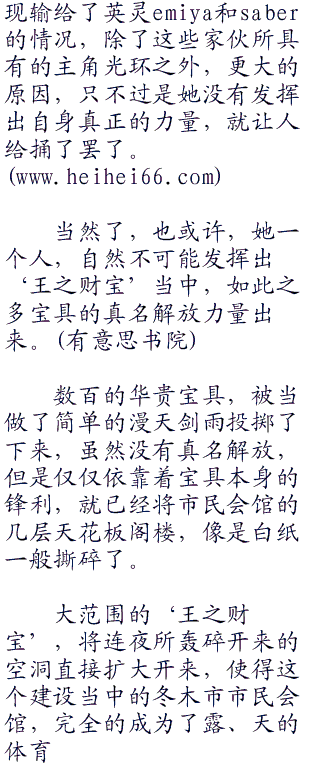 现输给了英灵emiya和saber
的情况，除了这些家伙所具
有的主角光环之外，更大的
原因，只不过是她没有发挥
出自身真正的力量，就让人
给捅了罢了。
(www.heihei66.com)
当然了，也或许，她一
个人，自然不可能发挥出
‘王之财宝’当中，如此之
多宝具的真名解放力量出
来。(有意思书院)
数百的华贵宝具，被当
做了简单的漫天剑雨投掷了
下来，虽然没有真名解放，
但是仅仅依靠着宝具本身的
锋利，就已经将市民会馆的
几层天花板阁楼，像是白纸
一般撕碎了。
大范围的‘王之财
宝’，将连夜所轰碎开来的
空洞直接扩大开来，使得这
个建设当中的冬木市市民会
馆，完全的成为了露、天的
体育